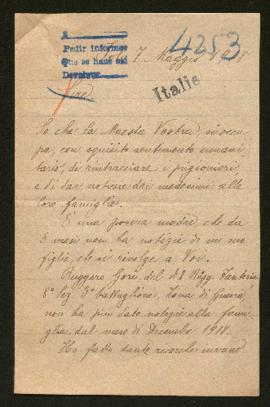 Pedir informes
Que se hace así
Devolver
4253
7 Maggio
Italie
Sire
So che la Maestà Vostra, si occu-
pa, con squisito sentimento umani-
tario, di rintracciare i prigionieri,
e di dar notizie dei medesimi alle
loro famiglie.
È una povera madre, che da
5 mesi non ha notizie di un suo
figlio, che si rivolge a Voi.
Ruggero del Regg. Fanteria
8ª 3º battaglione, Zona di Guerra
non ha più dato notizie alla fami-
glia dal mese di Dicembre
Ho fatto tante ricerche invano